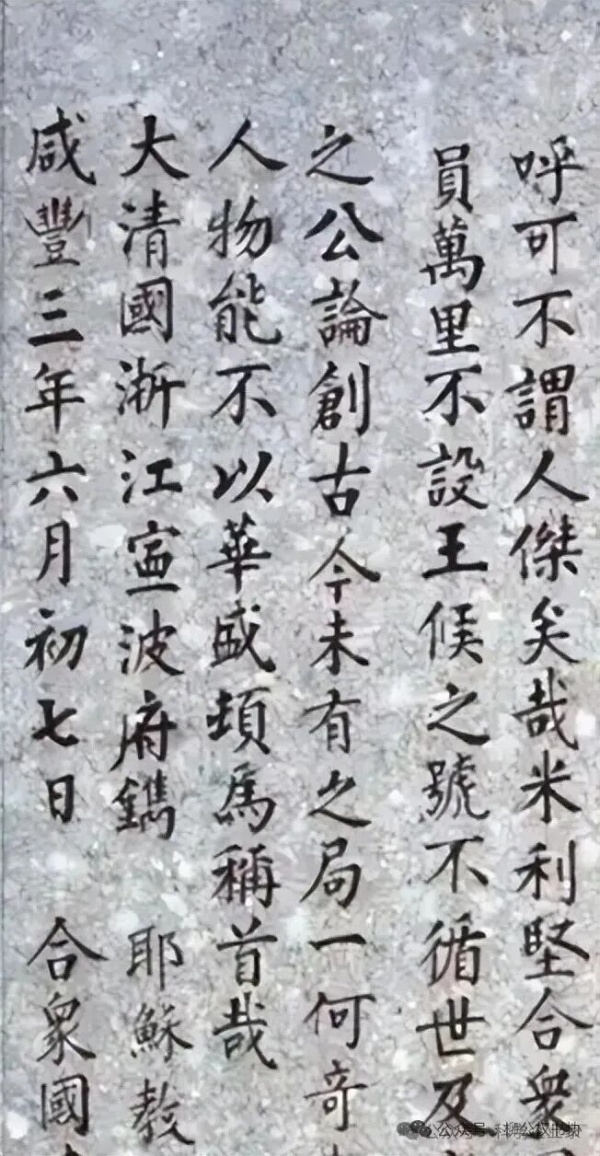 呼可不謂人傑矣哉米利堅合衆
員萬里不設王候之號不循世及
之公論創古今未有之局一何竒
人物能不以華盛頓為稱首哉
大清國浙江寍波府鐫 耶穌教
咸豐三年六月初七日 合衆國
公众号